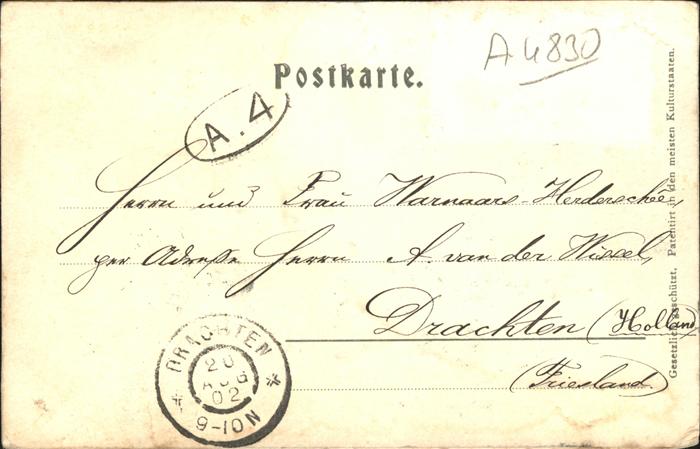 A 4830
Postkarte.
A.4
Herrn und Frau Warnaars-Herderscheê,
per Adreſse Herrn A. van der Wissel,
Drachten (Holland)
(Friesland)
DRACHTEN
20
AUG
02
9-10N
Gesetzlich geschützt. Patentirt in den meisten Kulturstaaten.